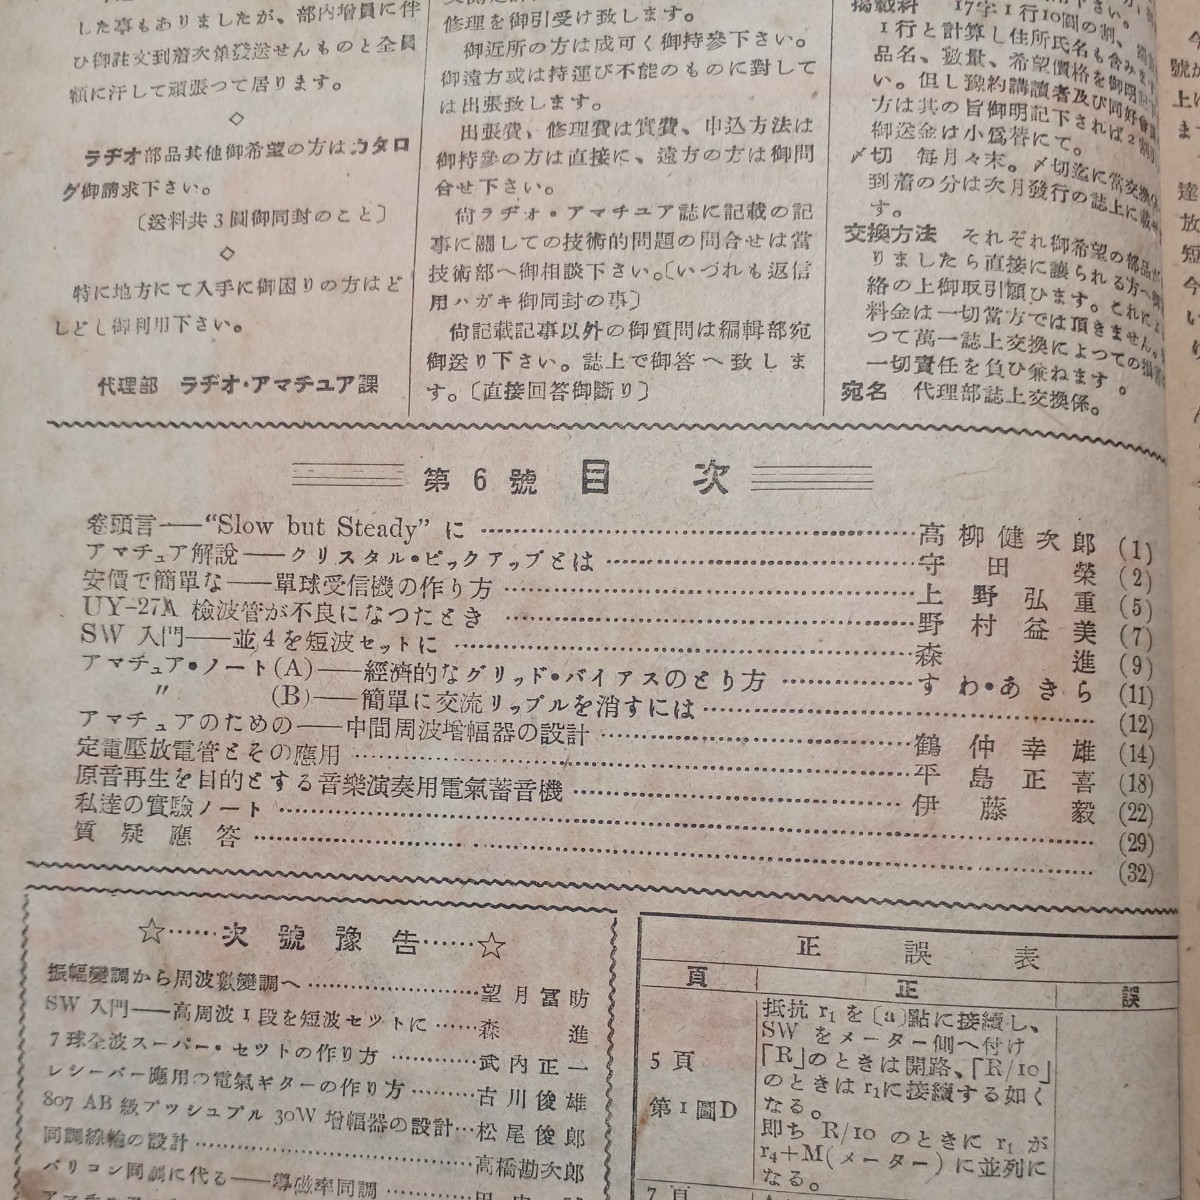 した事もありましたが、部内増員に伴
ひ御註文到着次第發送せんものと全員
額に汗して頑張つて居ります。
◇
ラヂオ部品其他御希望の方はカタロ
グ御請求下さい。
〔送料共3圓御同封のこと〕
◇
特に地方にて入手に御困りの方はど
しどし御利用下さい。
代理部 ラヂオ・アマチュア課
修理を御引受け致します。
御近所の方は成可く御持參下さい。
御遠方或は持運び不能のものに對して
は出張致します。
出張費、修理費は實費、申込方法は
御持參の方は直接に、遠方の方は御問
合せ下さい。
尙ラヂオ・アマチュア誌に記載の記
事に關しての技術的問題の問合せは當
技術部へ御相談下さい。〔いづれも返信
用ハガキ御同封の事〕
尙記載記事以外の御質問は編輯部宛
御送り下さい。誌上で御答へ致しま
す。〔直接回答御斷り〕
掲載料 17字1行10圓の割、
1行と計算し住所氏名も含み
品名、數量、希望價格を御明
い。但し豫約講讀者及び同好
方は其の旨御明記下されば2割
御送金は小爲替にて。
〆切 毎月々末。〆切迄に當交換
到着の分は次月發行の誌上に載
す。
交換方法 それぞれ御希望の部品が
りましたら直接に讓られる方へ御
絡の上御取引願ひます。これによ
料金は一切當方では頂きません。
つて萬一誌上交換によつての
一切責任を負ひ兼ねます。
宛名 代理部誌上交換係。
第6號 目次
卷頭言——“Slow but Steady”に……高柳健次郎 (1)
アマチュア解說——クリスタル・ピックアップとは……守田榮 (2)
安價で簡單な——單球受信機の作り方……上野弘重 (5)
UY-27A 檢波管が不良になつたとき……野村益美 (7)
SW 入門——並4を短波セットに……森進 (9)
アマチュア・ノート(A)——經濟的なグリッド・バイアスのとり方……すわ・あきら (11)
〃 (B)——簡單に交流リップルを消すには…… (12)
アマチュアのための——中間周波增幅器の設計……鶴仲幸雄 (14)
定電壓放電管とその應用……平島正喜 (18)
原音再生を目的とする音樂演奏用電氣蓄音機……伊藤毅 (22)
私達の實驗ノート…… (29)
質疑應答…… (32)
☆……次號豫告……☆
振幅變調から周波數變調へ……望月冨昉
SW 入門——高周波1段を短波セットに……森進
7球全波スーパー・セットの作り方……武内正一
レシーバー應用の電氣ギターの作り方……古川俊雄
807 AB級プッシュプル 30W 增幅器の設計…松尾俊郎
同調線輪の設計……高橋勘次郎
バリコン同調に代る——導磁率同調……田
正誤表
頁 正 誤
5頁
第1圖D
抵抗 r₁ を〔a〕點に接續し、
SW をメーター側へ付け
「R」のときは開路、「R/10」
のときは r₁に接續する如く
なる。
即ち R/10 のときに r₁ が
r₄+M(メーター)に並列に
なる。
7頁